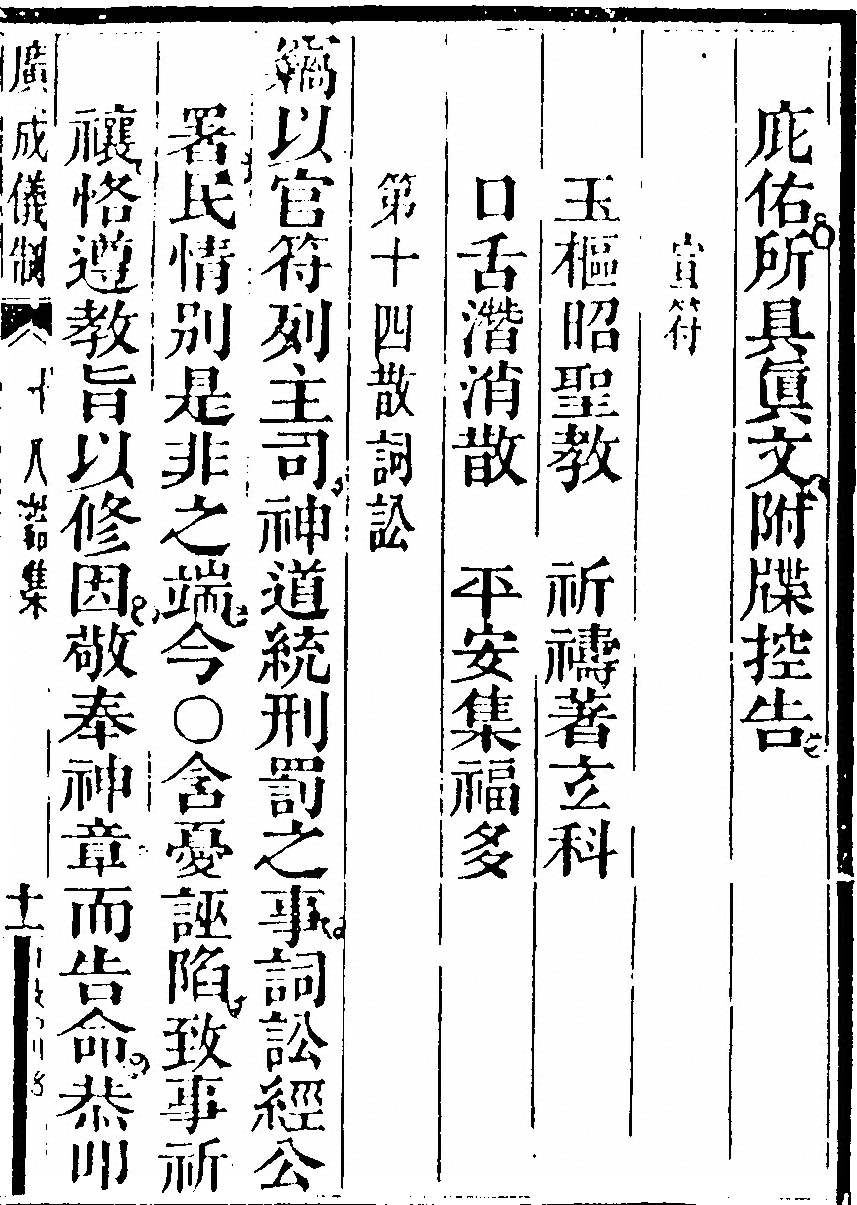 庇佑所具眞文附牒控告
宣符
玉樞昭聖教　祈禱著立科
口舌潛消散　平安集福多
第十四散詞訟
竊以官符列主司神道統刑罰之事詞訟經公
署民情別是非之端今○含憂誣陷致事祈
禳恪遵教旨以修因敬奉神章而告命恭叩
廣成儀制　十八誥集　十一